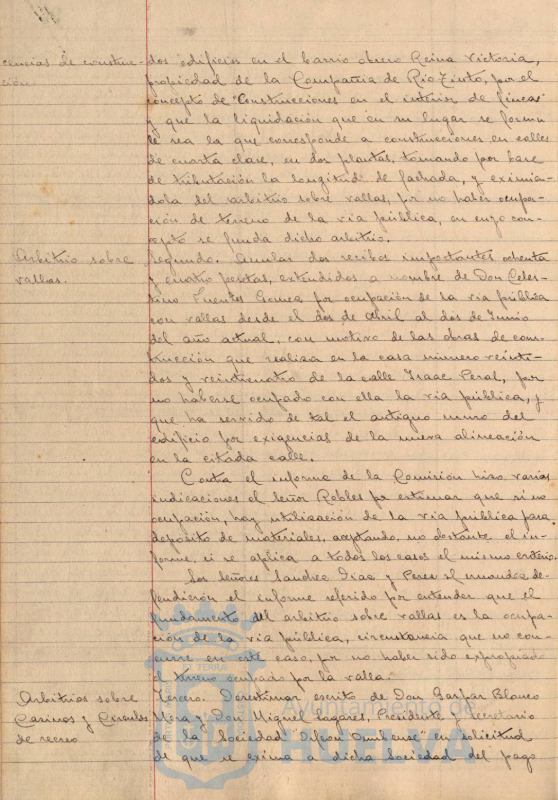 cencias de construc- dos edificios en el barrio obrero Reina Victoria,
ción. propiedad de la Compañia de Rio Tinto, por el
concepto de "Construcciones en el interior de fincas"
y que la liquidación que en su lugar se forme
le sea la que corresponde a construcciones en calles
de cuarta clase, en dos plantas, tomando por base
de tributación la longitud de fachada, y eximien-
dola del arbitrio sobre vallas, por no haber ocupa-
ción de terreno de la via pública, en cuyo con-
cepto se funda dicho arbitrio.
Arbitrio sobre Segundo. Anular dos recibos importantes ochenta
vallas. y cuatro pesetas, extendidos a nombre de Don Celes-
tino Fuentes Gomez por ocupación de la via pública
con vallas desde el dos de Abril al dos de Junio
del año actual, con motivo de las obras de cons-
trucción que realiza en la casa número veinti-
dos y veinticuatro de la calle Isaac Peral, por
no haberse ocupado con ella la via pública, y
que ha servido de tal el antiguo muro del
edificio por exigencias de la nueva alineación
en la citada calle.
Contra el informe de la Comisión hizo varias
indicaciones el Señor Robles por estimar que si no
ocupación, hay utilización de la via pública para
depósito de materiales, aceptando, no obstante el in-
forme, si se aplica a todos los casos el mismo criterio.
Los Señores Sanchez Diaz y Perez de-
fendieron el informe referido por entender que el
fundamento del arbitrio sobre vallas es la ocupa-
ción de la via pública, circustancia que no con-
curre en este caso, por no haber sido expropiado
el terreno ocupado por la valla.
Arbitrios sobre Tercero. Desestimar escrito de Don Gaspar Blanco
Casinos y Circulos Mora y Don Miguel Lagares, Presidente y Secretario
de recreo de la Sociedad Orfeon Onubense en solicitud
de que se exima a dicha sociedad del pago
Ayuntamiento de
HUELVA